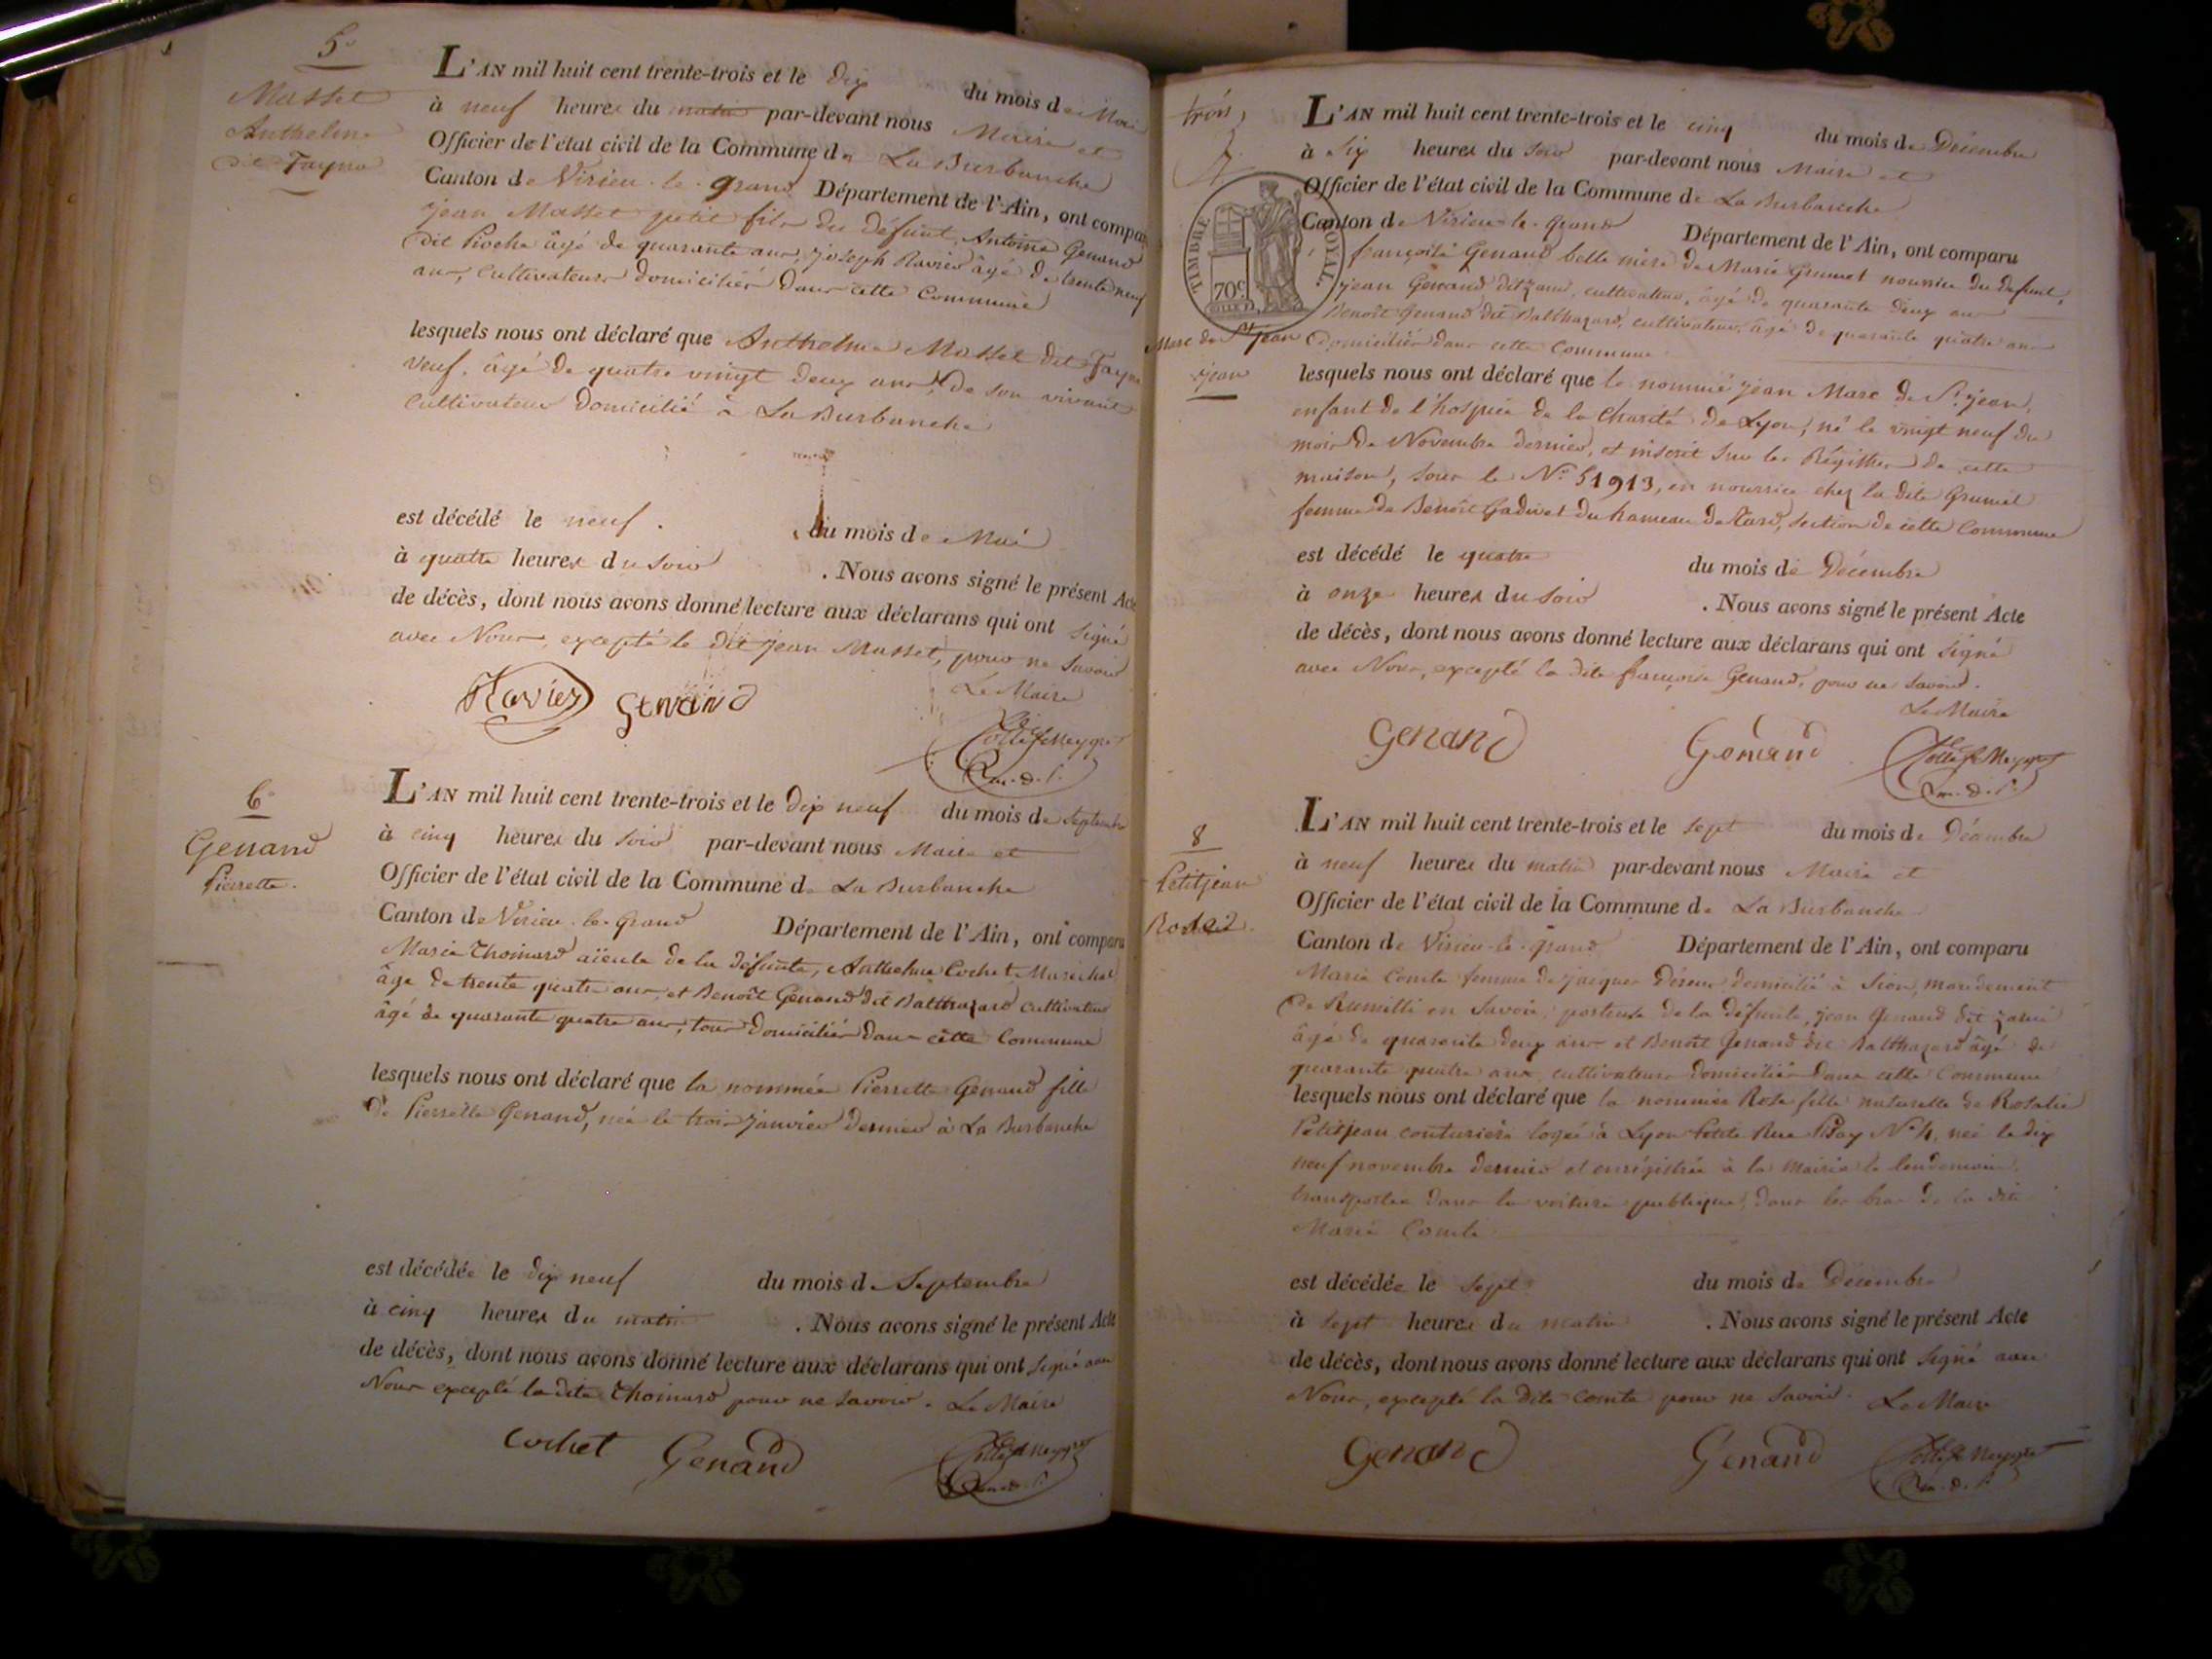 5e
Masset
Anthelme
dit Fayna
L'AN mil huit cent trente-trois et le dix du mois de Mai
à neuf heures du matin par-devant nous Maire et
Officier de l'état civil de la Commune de La Burbanche
Canton de Virieu-le-grand Département de l'Ain, ont compa
jean Masset petit fils du défunt, Antoine Genand
dit Pioche âgé de quarante ans, joseph Ravier âgé de trente neuf
ans, cultivateurs domiciliés dans cette Commune
lesquels nous ont déclaré que Anthelme Masset dit Fayna
veuf, âgé de quatre vingt deux ans, de son vivant
Cultivateur domicilié à La Burbanche
est décédé le neuf du mois de Mai
à quatre heures du soir . Nous avons signé le présent Acte
de décès, dont nous avons donné lecture aux déclarans qui ont signé
avec Nous, excepté le dit jean Masset, pour ne savoir
Le Maire
Ravier Genand
6e
Genand
Pierrette.
L'AN mil huit cent trente-trois et le dix neuf du mois de Septembre
à cinq heures du soir par-devant nous Maire et
Officier de l'état civil de la Commune de La Burbanche
Canton de Virieu-le-Grand Département de l'Ain, ont comparu
Marie Thoinard aïeule de la défunte, Anthelme Cochet Maréchal
âgé de trente quatre ans, et Benoît Genand dit Balthazard cultivateur
âgé de quarante quatre ans, tous domiciliés dans cette Commune
lesquels nous ont déclaré que la nommée Pierrette Genand fille
de Pierrette Genand, née le trois janvier dernier à La Burbanche
est décédée le dix neuf du mois de Septembre
à cinq heures du matin . Nous avons signé le présent Acte
de décès, dont nous avons donné lecture aux déclarans qui ont signé avec
Nous excepté la dite Thoinard pour ne savoir. Le Maire
Cochet Genand
trois
7
TIMBRE ROYAL
70c
Marc de St jean
jean
L'AN mil huit cent trente-trois et le cinq du mois de Décembre
à six heures du soir par-devant nous Maire et
Officier de l'état civil de la Commune de La Burbanche
Canton de Virieu-le-grand Département de l'Ain, ont comparu
françoise Genand belle mère de Marie Grumet nourrice du défunt,
jean Genand dit , cultivateur, âgé de quarante deux ans
Benoît Genand dit Balthazard, cultivateur, âgé de quarante quatre ans
Domiciliés dans cette Commune
lesquels nous ont déclaré que le nommé jean Marc de St jean,
enfant de l'hospice de la Charité de Lyon, né le vingt neuf du
mois de Novembre dernier, et inscrit sur les Régistres de cette
maison, sous le No 51913, en nourrice chez la dite Grumet
femme de Benoît du hameau de , section de cette Commune
est décédé le quatre du mois de Décembre
à onze heures du soir . Nous avons signé le présent Acte
de décès, dont nous avons donné lecture aux déclarans qui ont signé
avec Nous, excepté la dite françoise Genand, pour ne savoir.
Le Maire
Genand Genand
8
Petitjean
Rose
L'AN mil huit cent trente-trois et le sept du mois de Décembre
à neuf heures du matin par-devant nous Maire et
Officier de l'état civil de la Commune de La Burbanche
Canton de Virieu-le-grand Département de l'Ain, ont comparu
Marie Comte femme de jacques domicilié à Sion, mandement
de Rumilli en Savoie, porteuse de la défunte, jean Genand dit
âgé de quarante deux ans et Benoît Genand dit Balthazard âgé de
quarante quatre ans, cultivateurs domiciliés dans cette Commune
lesquels nous ont déclaré que la nommée Rose fille naturelle de Rosalie
Petitjean couturière logée à Lyon Petite Rue No 4, née le dix
neuf novembre dernier et enrégistrée à la Mairie le lendemain,
transportée dans la voiture publique, dans les bras de la dite
Marie Comte
est décédée le sept du mois de Décembre
à sept heures du matin . Nous avons signé le présent Acte
de décès, dont nous avons donné lecture aux déclarans qui ont signé avec
Nous, excepté la dite Comte pour ne savoir. Le Maire
Genand Genand